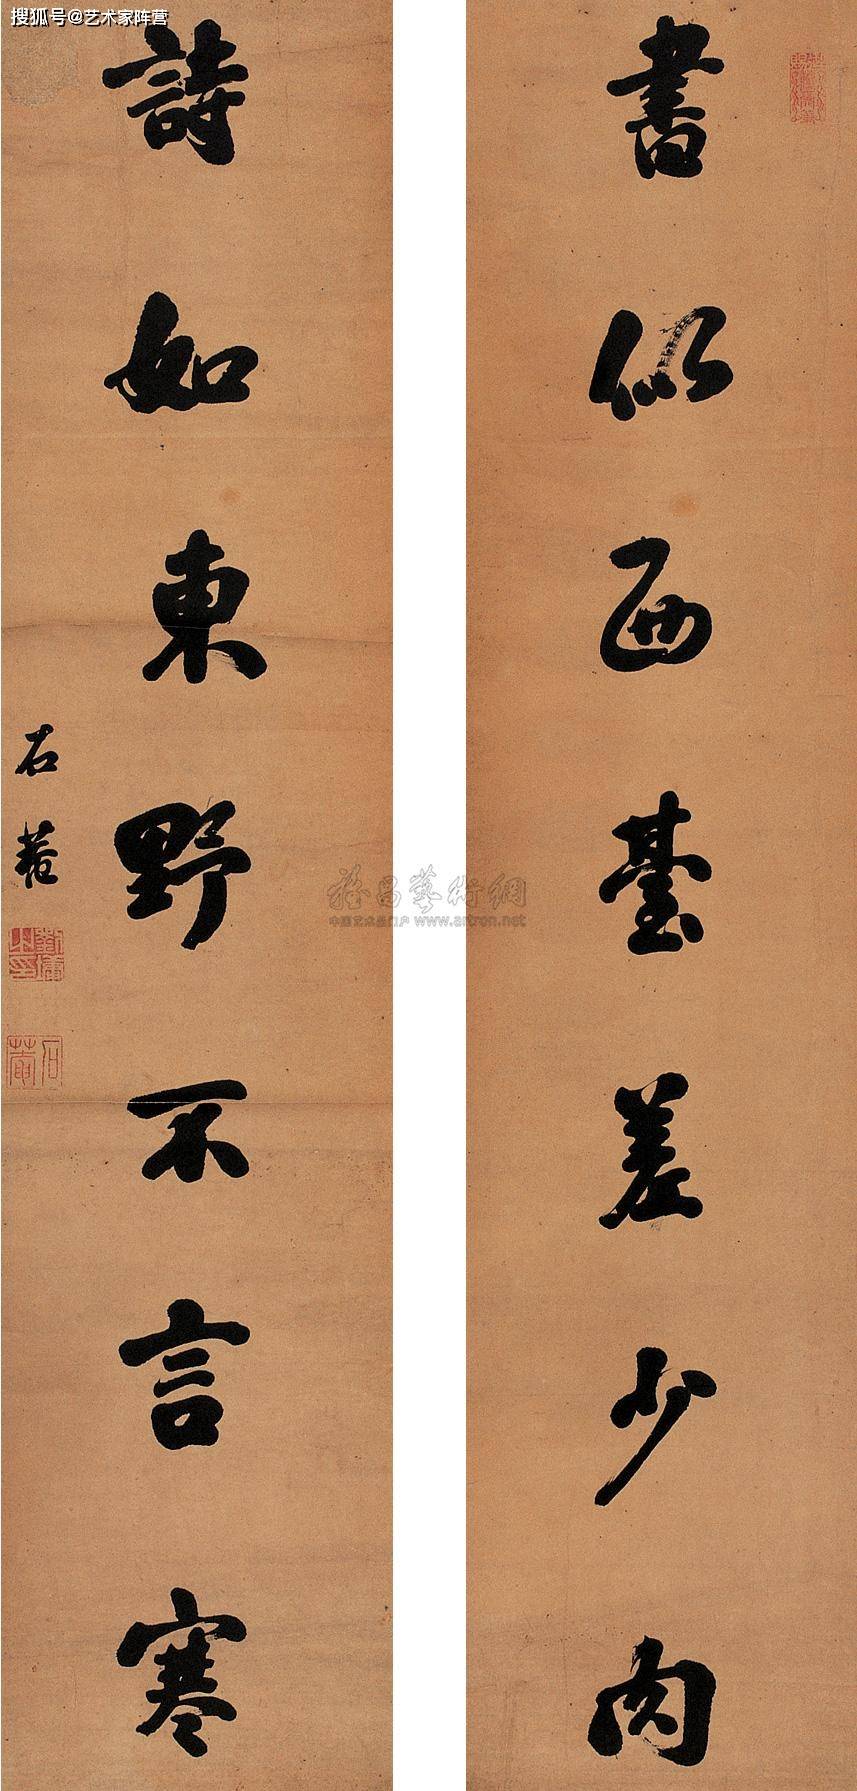 搜狐号@艺术家阵营
書似西臺差少肉
詩如東野不言寒
石菴
劉墉之印
石菴
雅昌藝術網
中国艺术品门户 www.artron.net